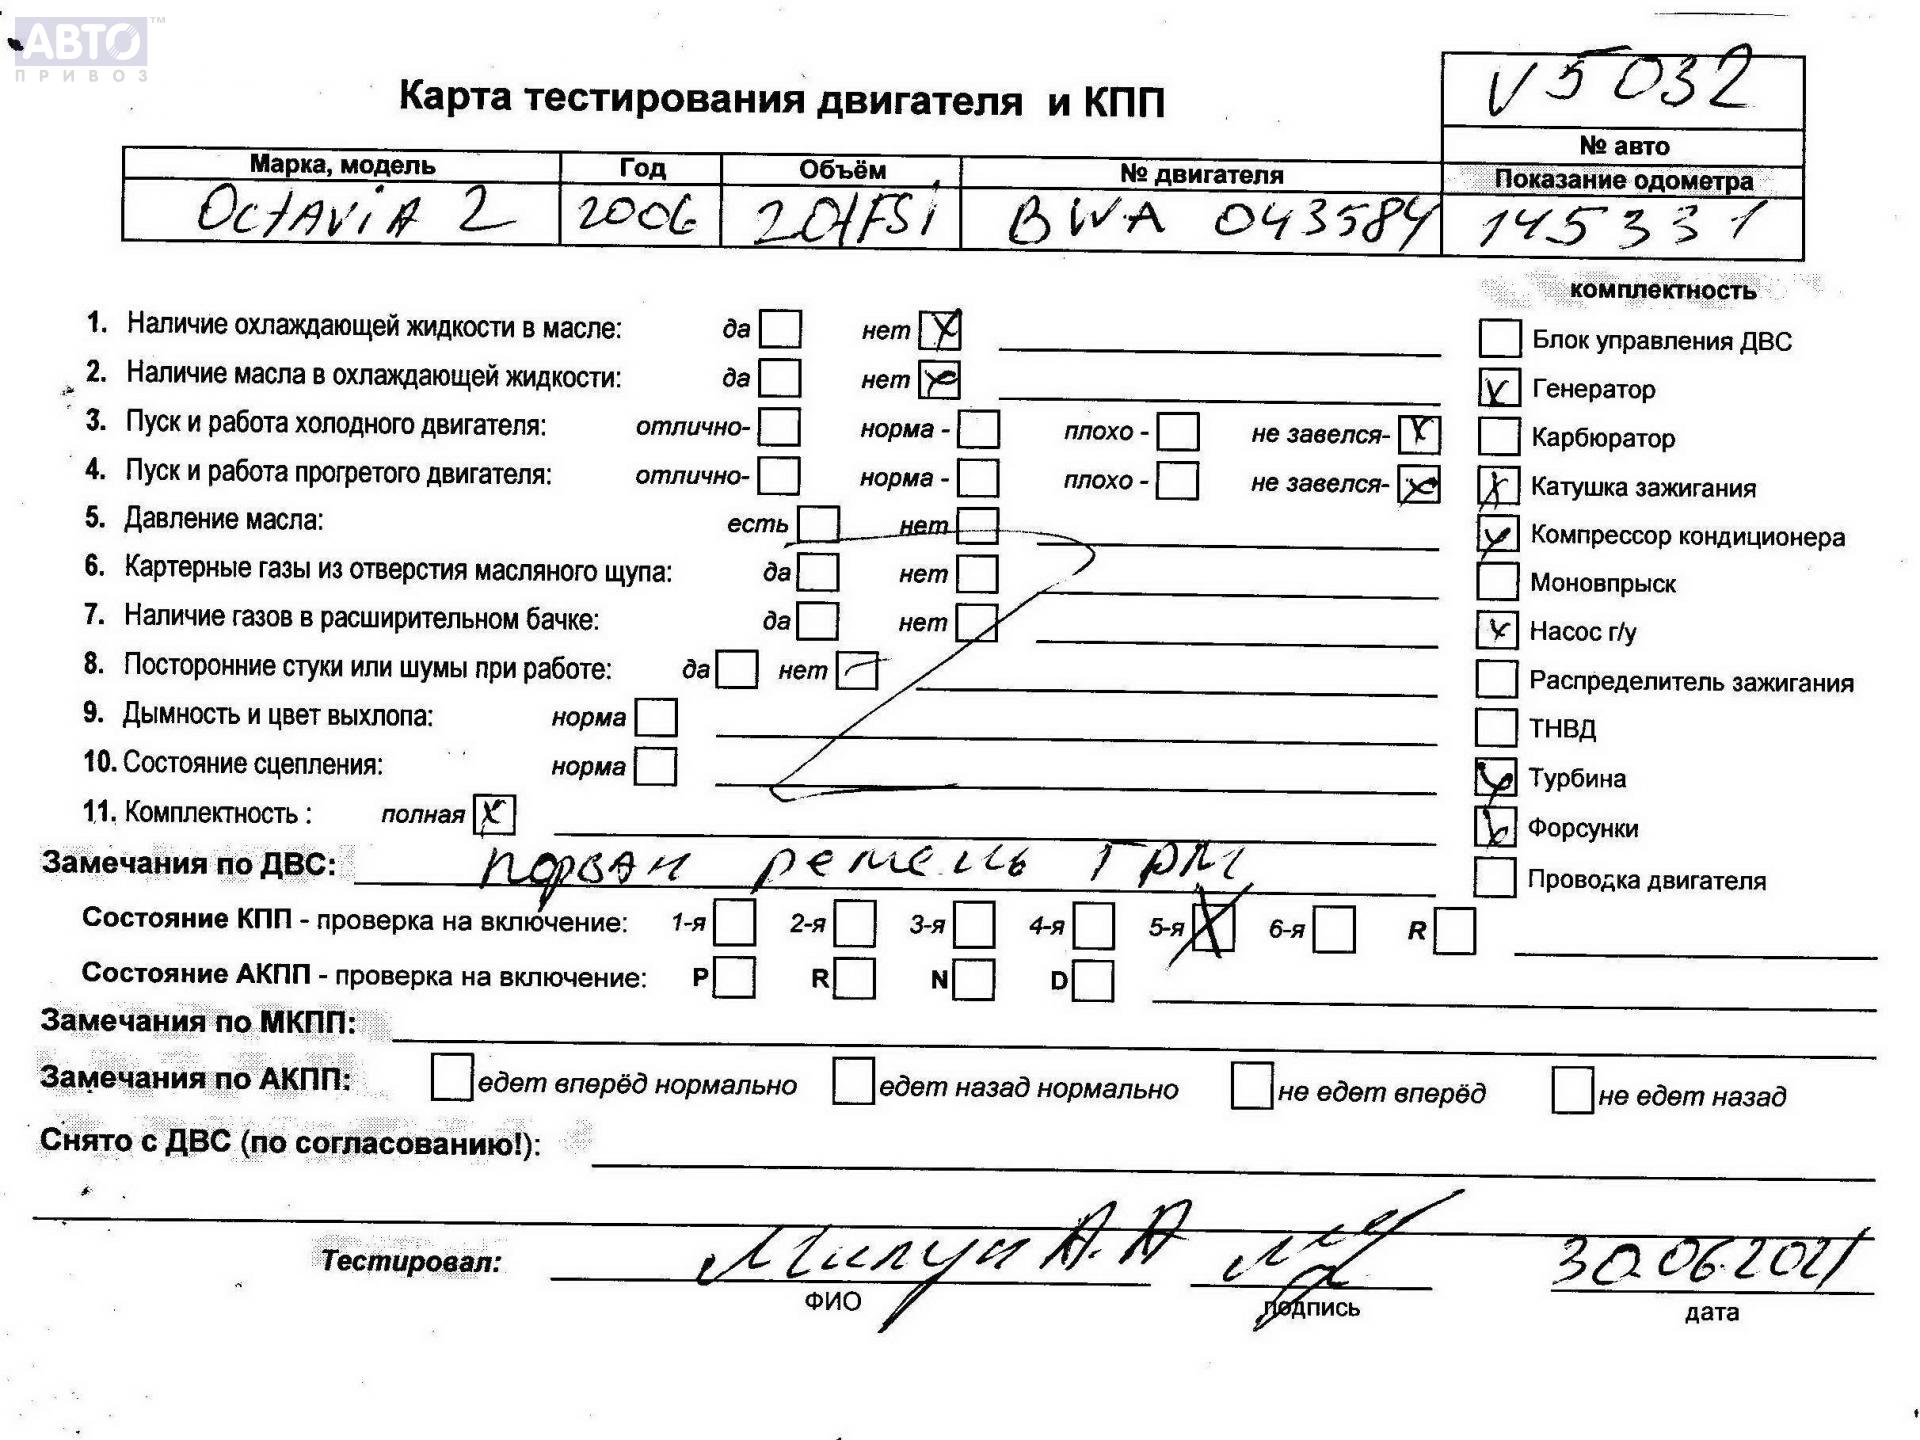 АВТО™
ПРИВОЗ
V5032
Карта тестирования двигателя и КПП
№ авто
Марка, модель Год Объём № двигателя Показание одометра
OctAviA 2 2006 2.0tFSi BWA 043584 145331
комплектность
1. Наличие охлаждающей жидкости в масле: да нет
Блок управления ДВС
2. Наличие масла в охлаждающей жидкости: да нет
Генератор
3. Пуск и работа холодного двигателя: отлично- норма - плохо - не завелся-
Карбюратор
4. Пуск и работа прогретого двигателя: отлично- норма - плохо - не завелся-
Катушка зажигания
5. Давление масла: есть нет
Компрессор кондиционера
6. Картерные газы из отверстия масляного щупа: да нет
Моновпрыск
7. Наличие газов в расширительном бачке: да нет
Насос г/у
8. Посторонние стуки или шумы при работе: да нет
Распределитель зажигания
9. Дымность и цвет выхлопа: норма
ТНВД
10. Состояние сцепления: норма
Турбина
11. Комплектность : полная
Форсунки
Замечания по ДВС: порван ремень ГРМ
Проводка двигателя
Состояние КПП - проверка на включение: 1-я 2-я 3-я 4-я 5-я 6-я R
Состояние АКПП - проверка на включение: P R N D
Замечания по МКПП:
Замечания по АКПП: едет вперёд нормально едет назад нормально не едет вперёд не едет назад
Снято с ДВС (по согласованию!):
Тестировал: А.А 30.06.2021
ФИО подпись дата